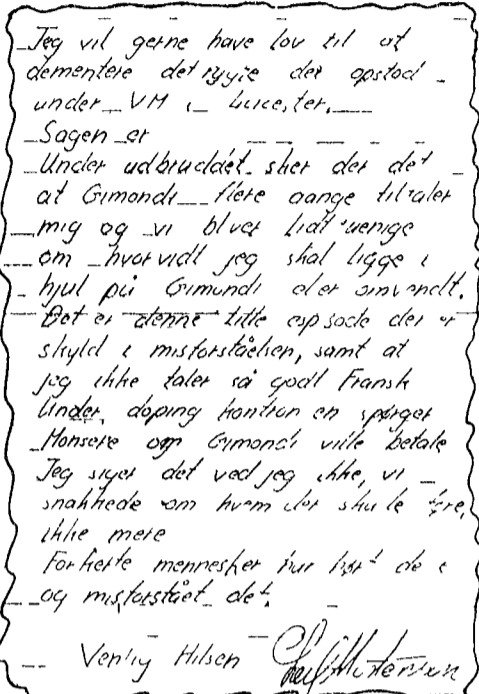 Jeg vil gerne have lov til at
dementere det rygte der opstod
under VM i Leicester.
Sagen er
Under udbruddet sker der det
at Gimondi flere gange tiltaler
mig og vi bliver lidt uenige
om hvorvidt jeg skal ligge i
hjul på Gimondi eller omvendt.
Det er denne lille episode der er
skyld i misforståelsen, samt at
jeg ikke taler så godt Fransk
Under doping kontrollen spørger
Monsere om Gimondi ville betale
Jeg siger det ved jeg ikke, vi
snakkede om hvem der skulle føre,
ikke mere
Forkerte mennesker har hørt de
og misforstået det.
Venlig Hilsen Leif Mortensen